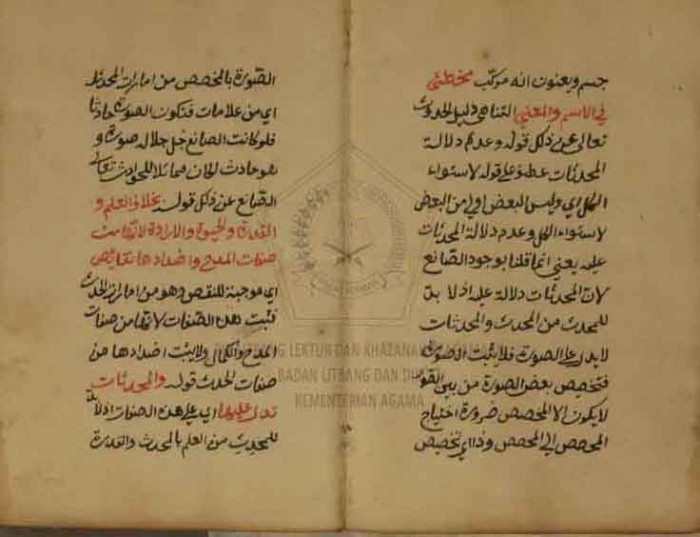 جسم ويعنون انه مركب مخطئي
في الاسم والمعنى التناهي دليل الحدوث
تعالى عن ذلك قوله وعدم دلالة
المحدثات عطف على قوله لاستواء
الكل اي وليس البعض اولى من البعض
لاستواء الكل وعدم دلالة المحدثات
عليه يعني انما قلنا بوجود الصانع
لان المحدثات دلالة عليه اذ لا بد
للمحدث من المحدث والمحدثات
لا يدل على الصورة فلا يثبت الصورة
فتخصيص بعض الصورة من بين الصور
لا يكون الا لمخصص ضرورة احتياج
المخصص الى المخصص وذا اي تخصيص
الصورة بالمخصص من امارات المحدث
اي من علامات فتكون الصورة حادثا
فلو كانت الصانع جل جلاله صورة و
هو حادث لكان مماثلا للحوادث تعالى
الصانع عن ذلك قوله بخلاف العلم و
القدرة والحيوة والارادة لانها من
صفات المدح واضدادها نقائص
اي موجبة للنقص وهو من امارات الحدث
فيثبت هذه الصفات لانها من صفات
المدح والكمال ولا يثبت اضدادها من
صفات الحدث قوله والمحدثات
تدل عليها اي على هذه الصفات اذ لا بد
للمحدث من العلم بالمحدث والقدرة
PUSLITBANG LEKTUR DAN KHAZANAH KEAGAMAAN
BADAN LITBANG DAN DIKLAT
KEMENTERIAN AGAMA